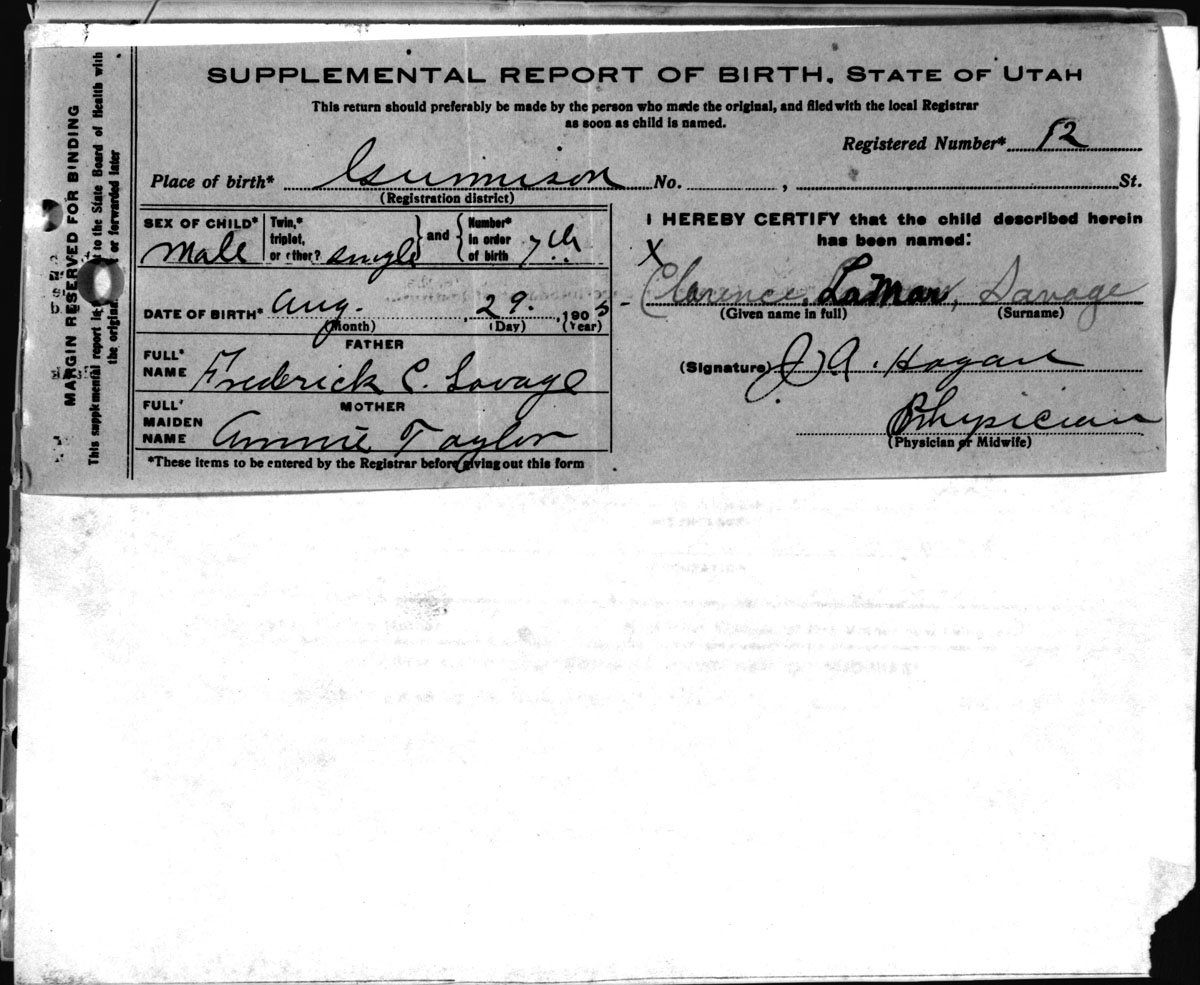 SUPPLEMENTAL REPORT OF BIRTH. STATE OF UTAH
This return should preferably be made by the person who made the original, and filed with the local Registrar
as soon as child is named.
Registered Number* 52
Place of birth* Gunnison No. , St.
(Registration district)
SEX OF CHILD* Male
Twin,* triplet, or other? single and Number* in order of birth 7th
DATE OF BIRTH* Aug. 29. 1905
(Month) (Day) (Year)
FATHER
FULL* NAME Frederick C. Savage
MOTHER
FULL* MAIDEN NAME Annie Taylor
*These items to be entered by the Registrar before giving out this form
I HEREBY CERTIFY that the child described herein
has been named:
X
Clarence LaMar, Savage
(Given name in full) (Surname)
(Signature) J A. Hagan
Physician
(Physician or Midwife)
MARGIN RESERVED FOR BINDING
This supplemental report to the State Board of Health with
the original or forwarded later